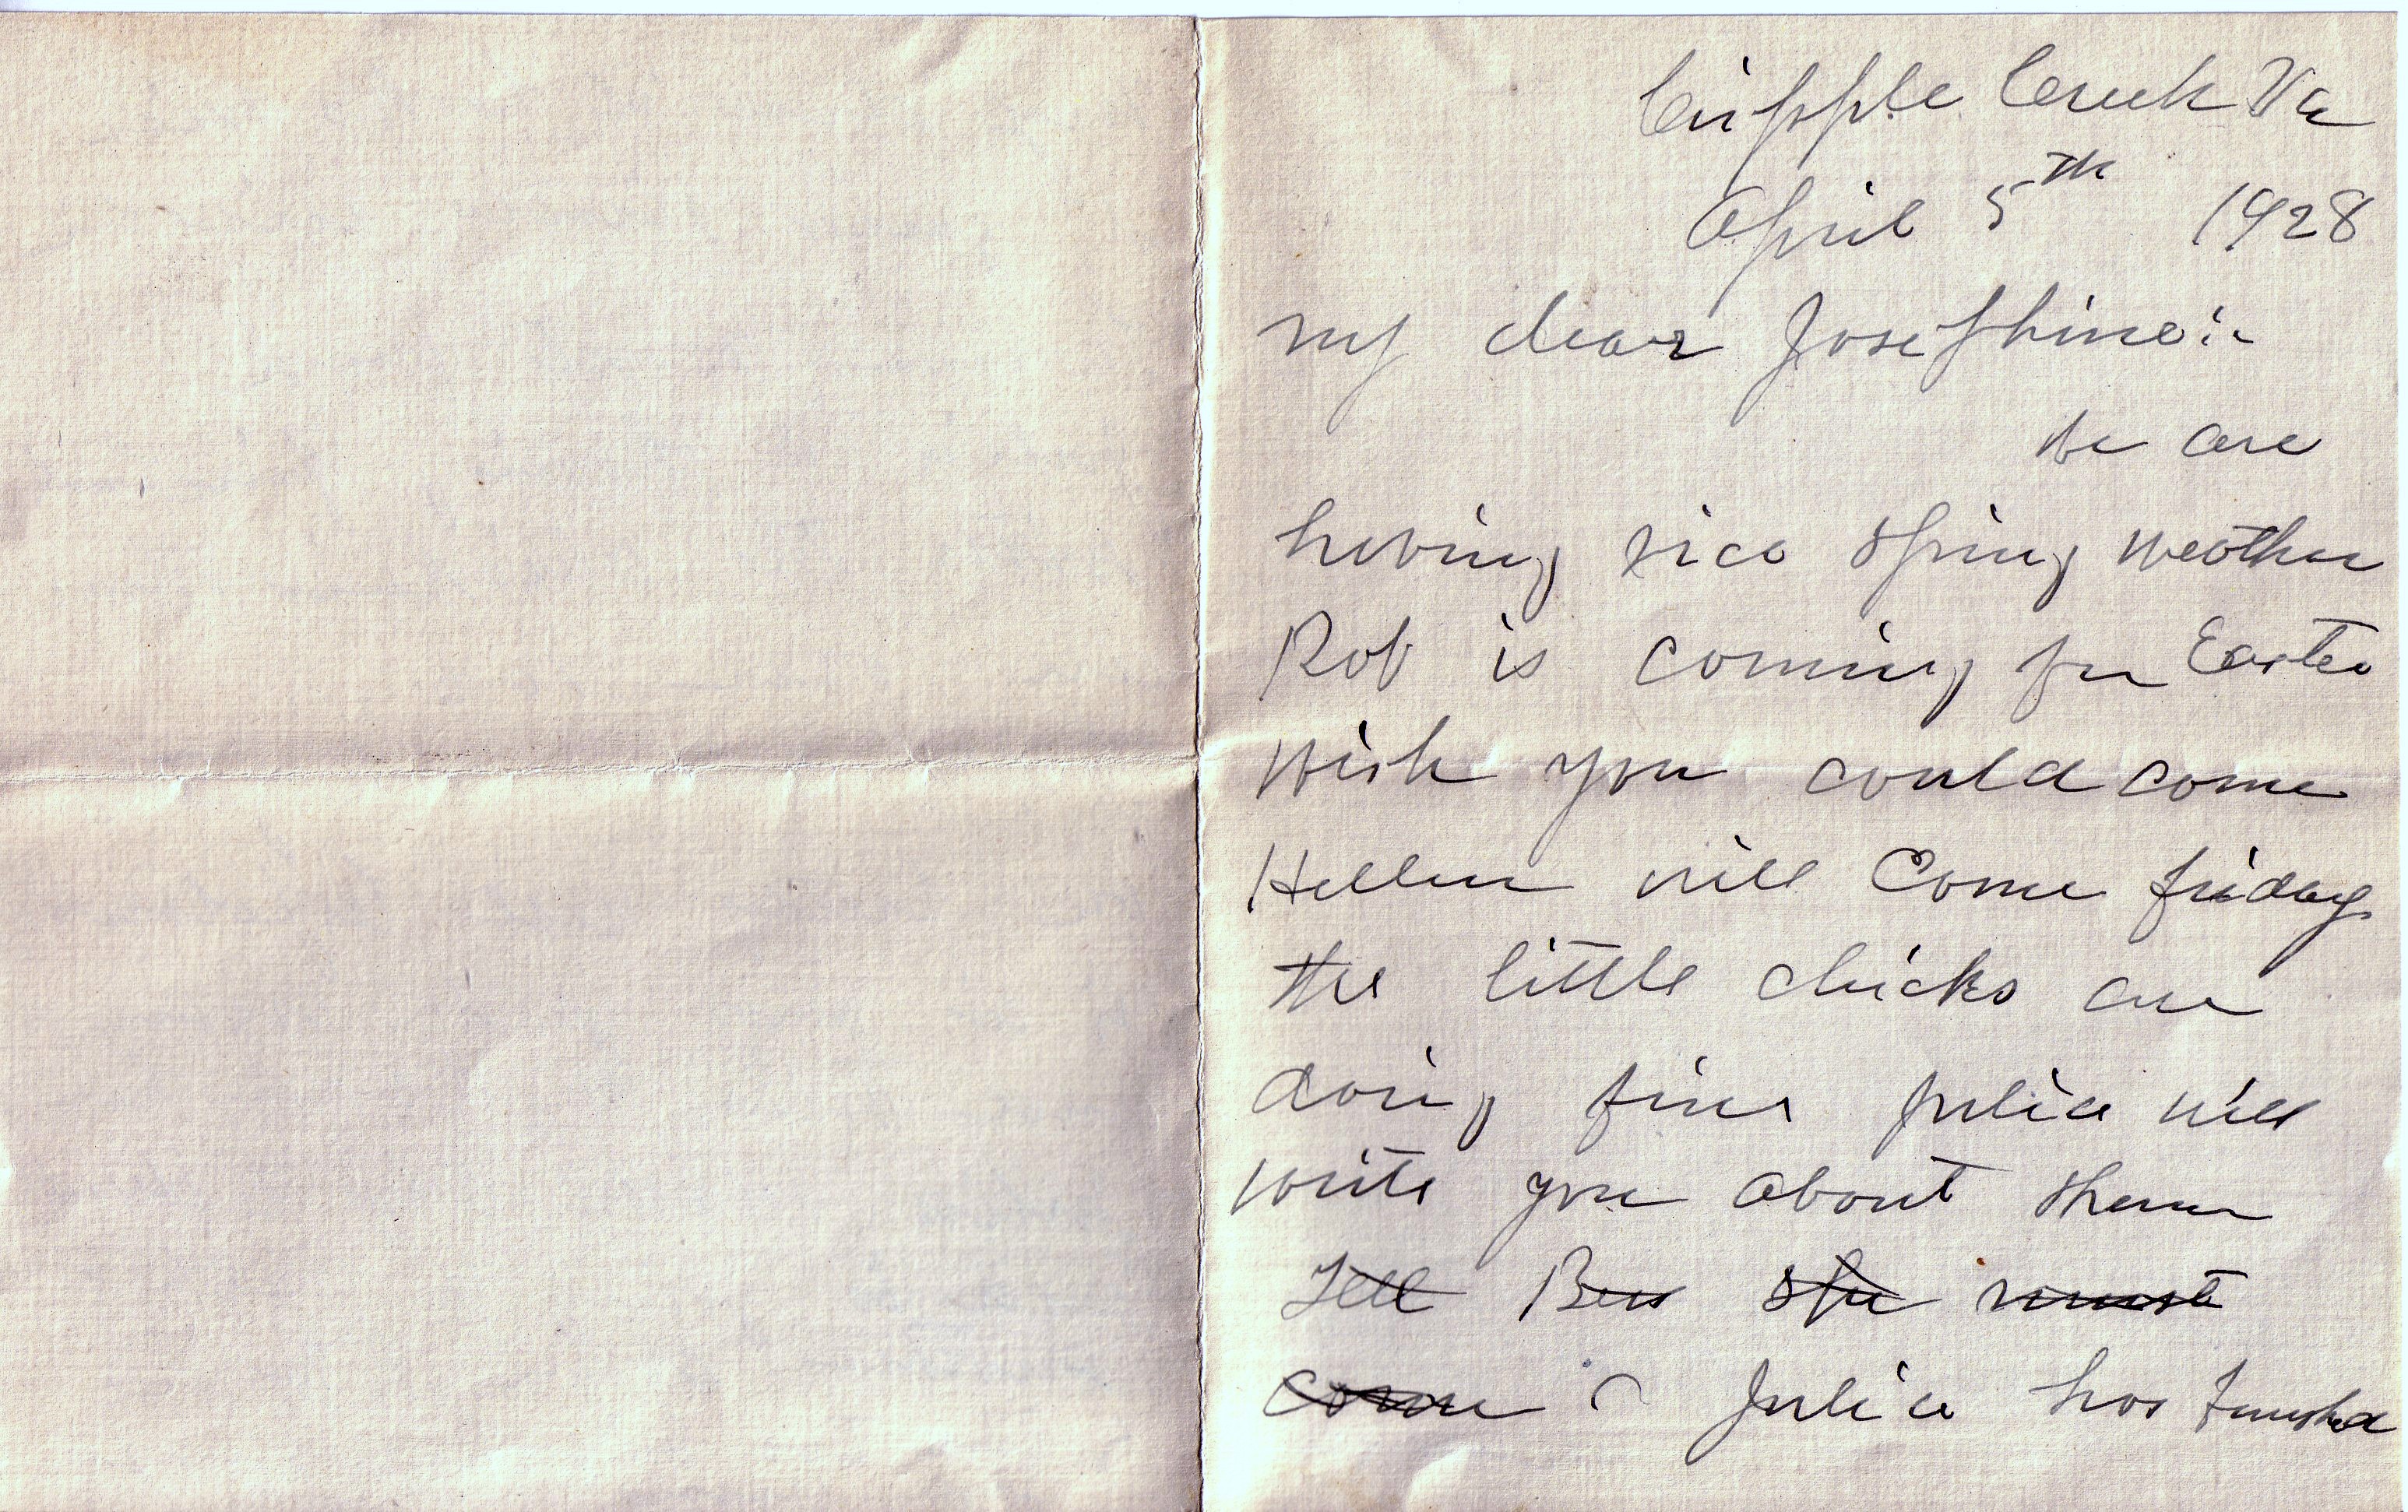 Cripple Creek Va
April 5th 1928
My dear Josephine:-
We are
having nice spring weather
Rob is coming for Easter
Wish you could come
Hellen will Come friday
the little chicks are
doing fine Julia will
write you about them
Tell Bess she must
come Julia has finished